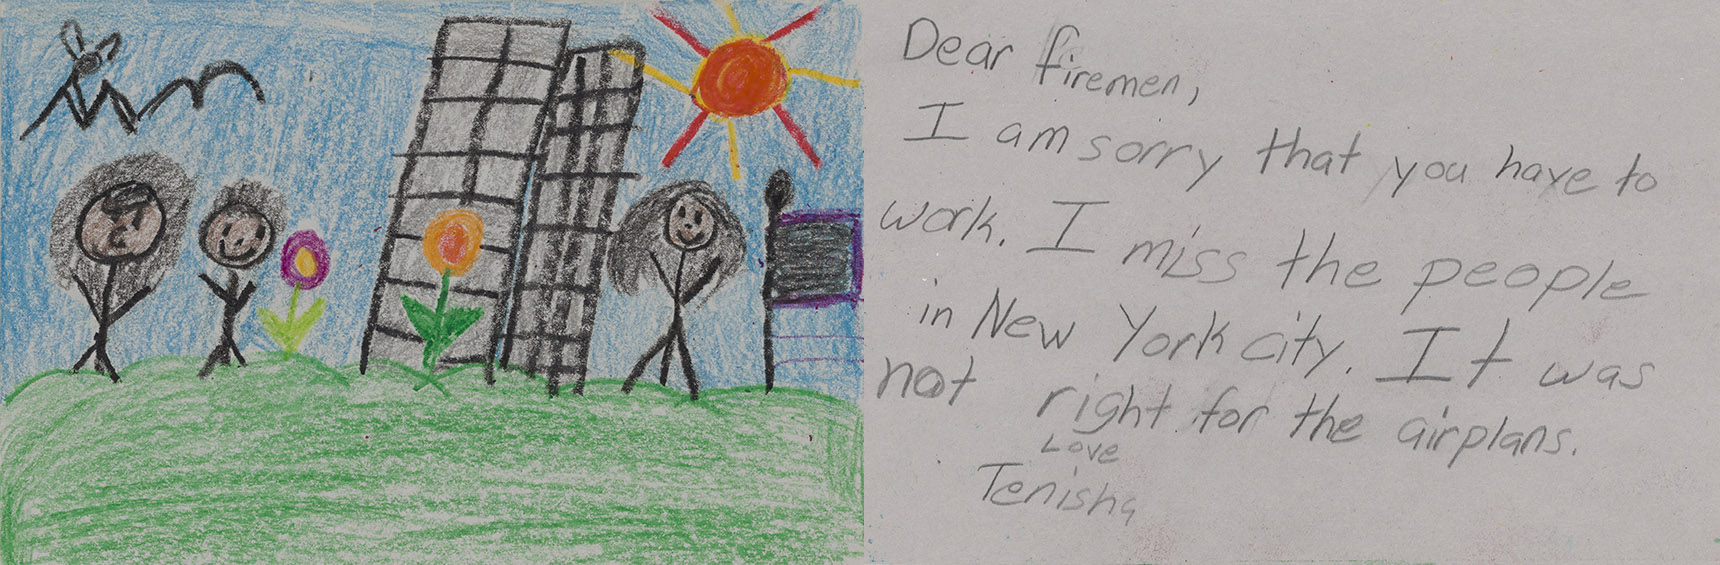 Dear firemen,
I am sorry that you have to
work. I miss the people
in New York city. It was
not right for the airplans.
Love
Tenisha